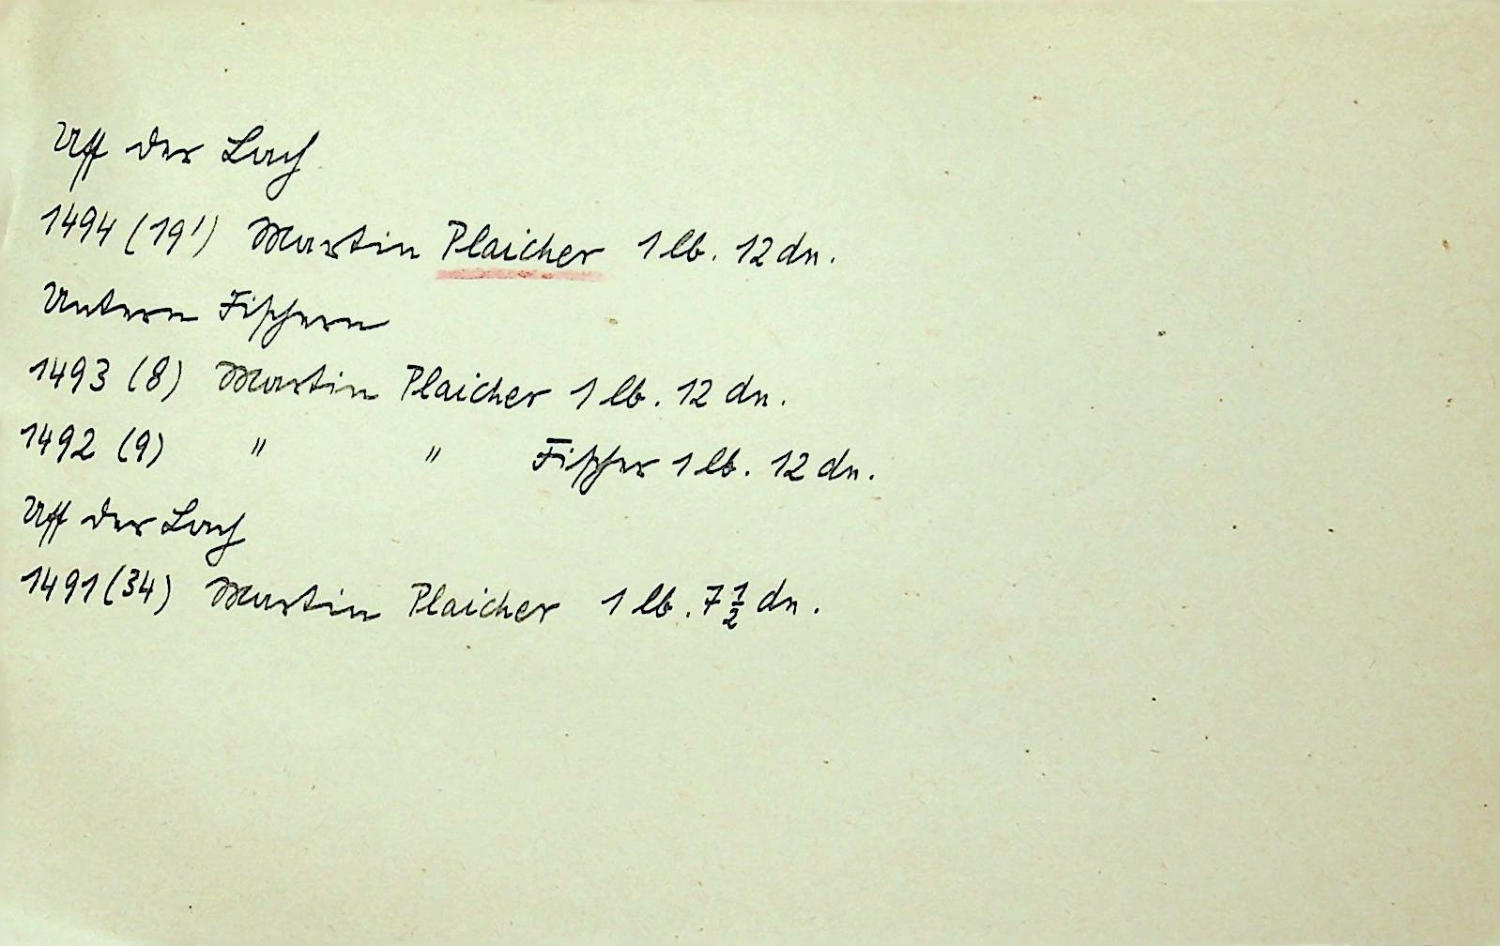 Uff der Lach
1494 (19') Martin Plaicher 1 lb. 12 dn.
Untern Fischern
1493 (8) Martin Plaicher 1 lb. 12 dn.
1492 (9) " " Fischer 1 lb. 12 dn.
Uff der Lach
1491 (34) Martin Plaicher 1 lb. 7 ½ dn.